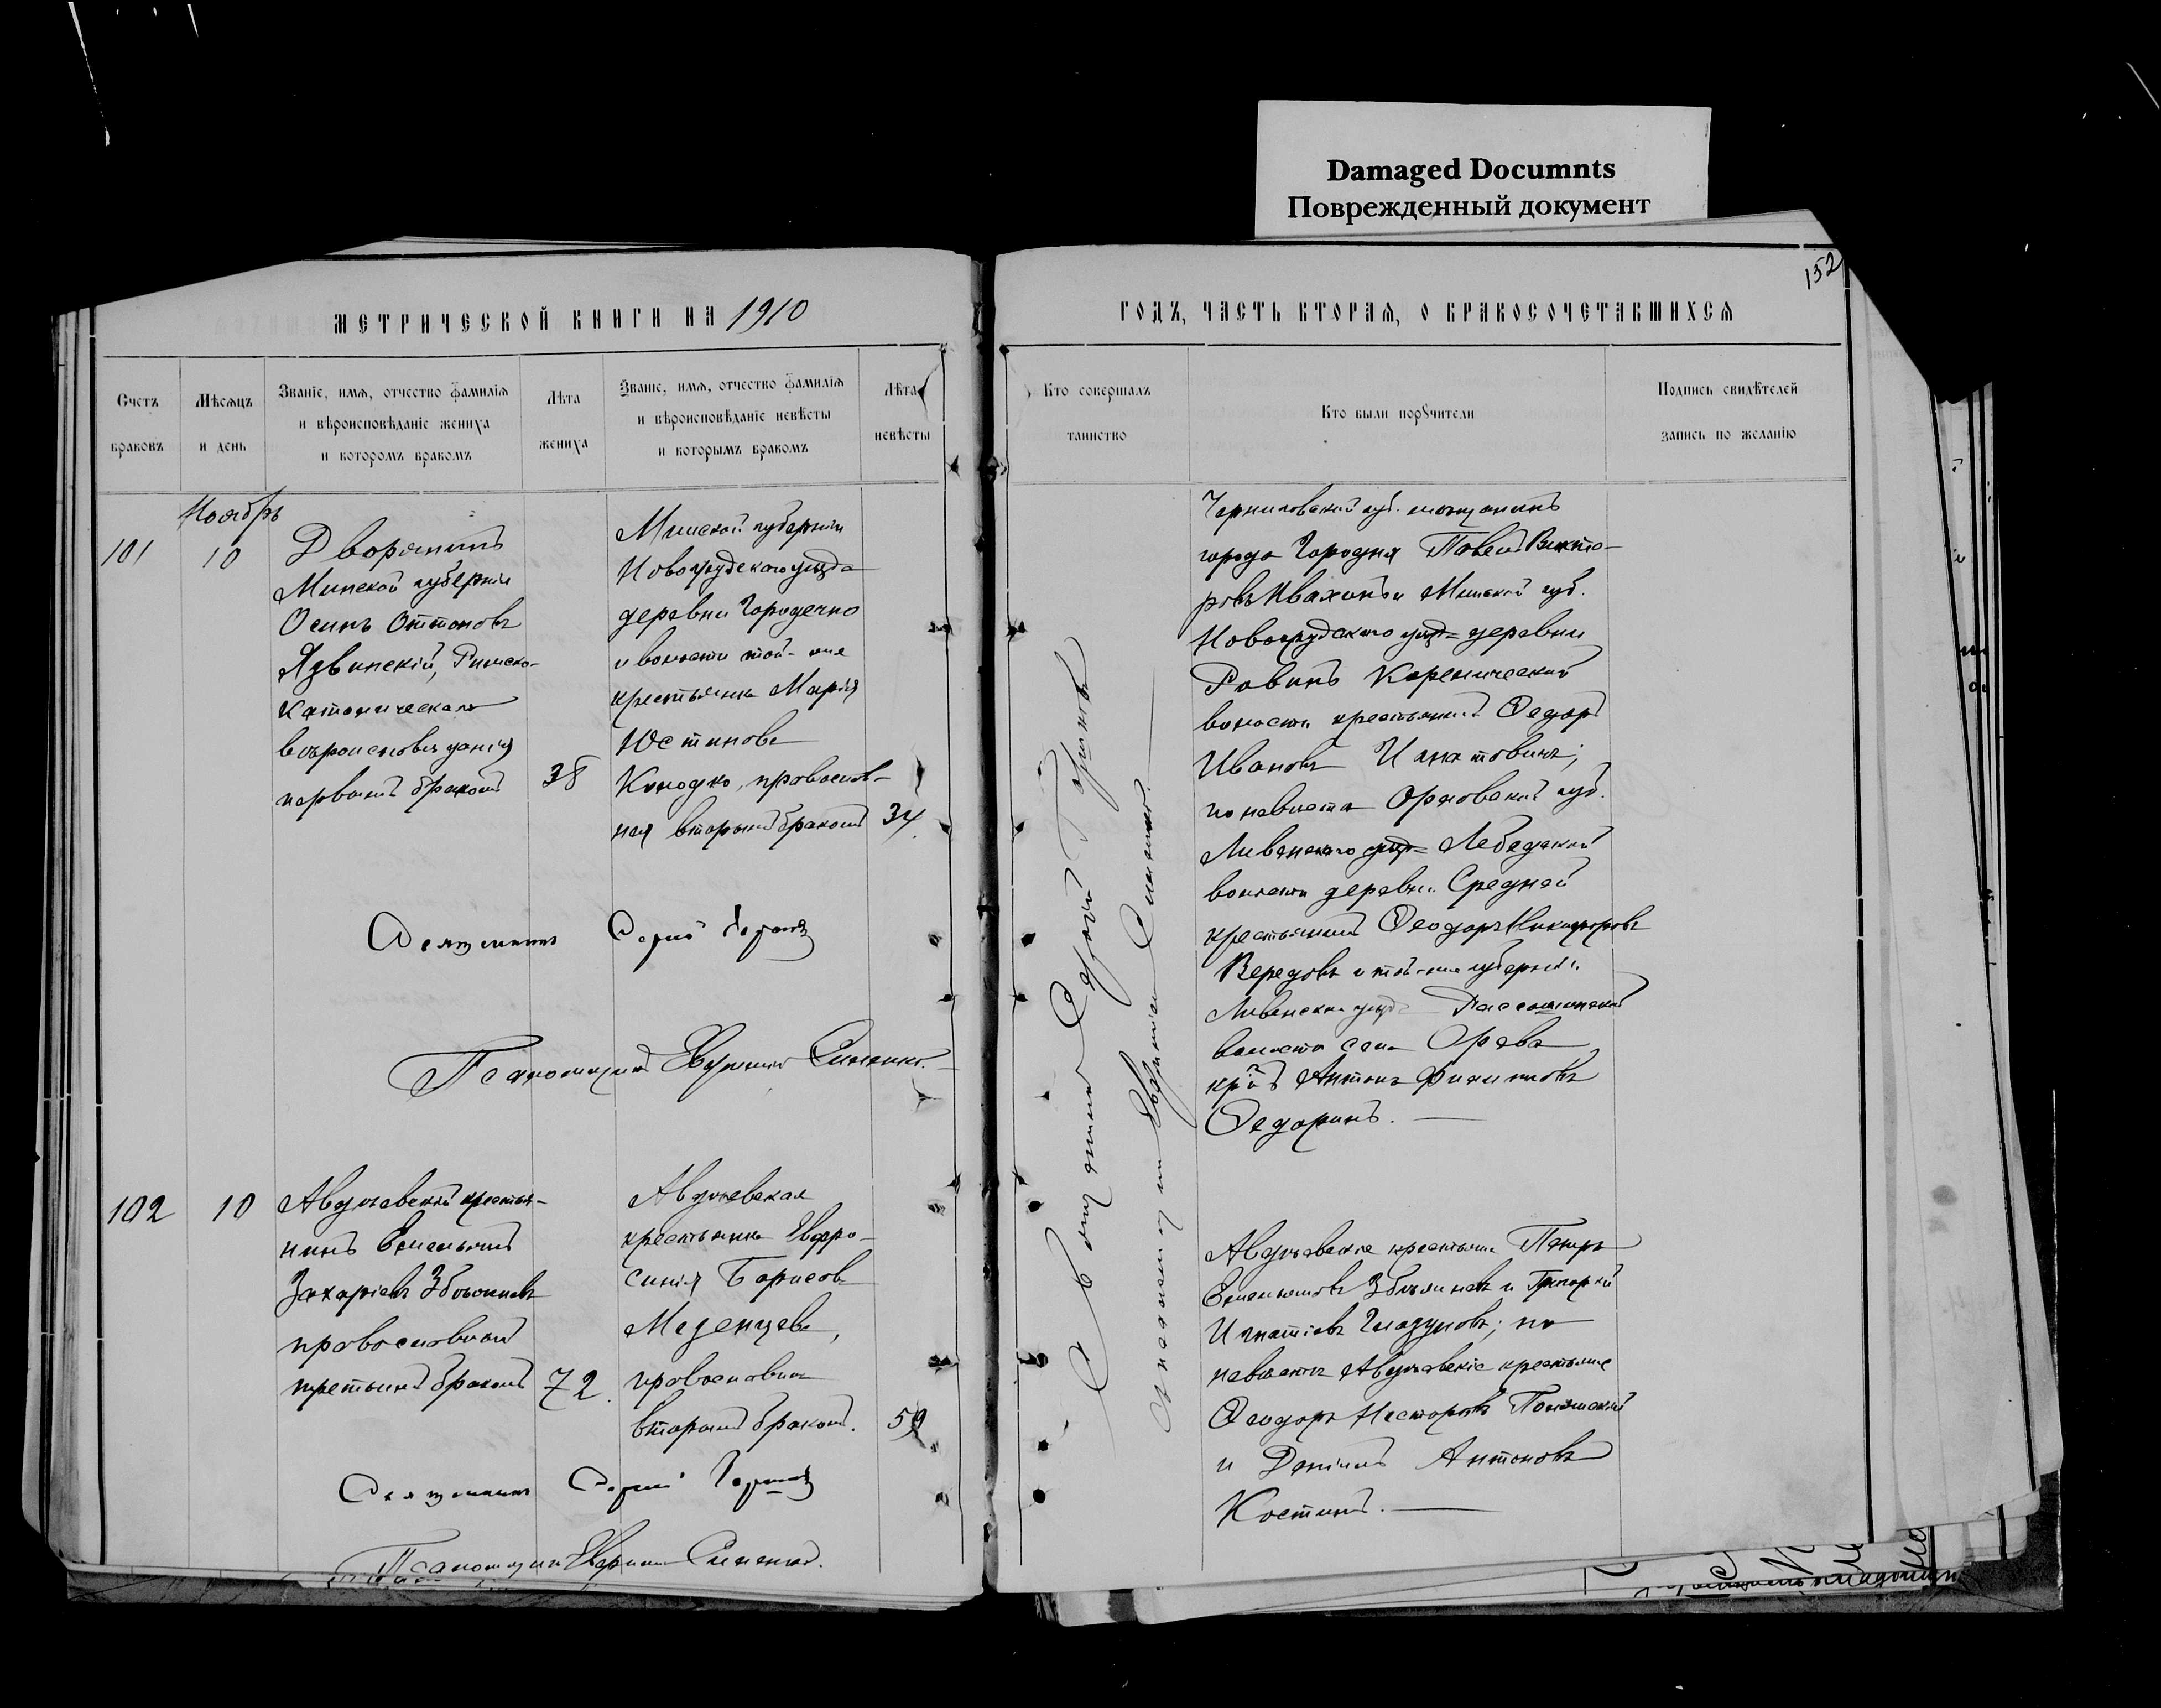 Damaged Documnts
Поврежденный документ
152
МЕТРИЧЕСКОЙ КНИГИ НА 1910
ГОДЪ, ЧАСТЬ ВТОРАЯ, О БРАКОСОЧЕТАВШИХСЯ
Счетъ
браковъ
Мѣсяцъ
и день
Званіе, имя, отчество фамилія
и вѣроисповѣданіе жениха
и которомъ бракомъ
Лѣта
жениха
Званіе, имя, отчество фамилія
и вѣроисповѣданіе невѣсты
и которымъ бракомъ
Лѣта
невѣсты
Кто совершалъ
таинство
Кто были порꙋчители
Подпись свидѣтелей
запись по желанію
Ноябрь
101
10
Дворянинъ
Минской губерніи
Осипъ Оттоновъ
Язвинскій, Римско-
католическаго
вѣроисповѣданія
первымъ бракомъ
38
Минской губерніи
Новогрудскаго уѣзда
деревни Городечно
и волости той-же
крестьянка Марія
Юстинова
православ-
ная вторымъ бракомъ
34
Священникъ Сергій
Псаломщикъ Евфимій Сименко.
Черниговской губ. мѣщанинъ
города Городня Павелъ Викто-
ровъ Ивахонъ и Минской губ.
Новогрудскаго уѣзда деревни
Кореличской
волости крестьянинъ Ѳедоръ
Ивановъ Игнатовичъ;
по невѣстѣ Орловской губ.
Ливенскаго уѣзда
волости деревни Средней
крестьянинъ Ѳеодоръ Никифоровъ
и той-же губерніи
Ливенскаго уѣзда
волости села
Антонъ Филипповъ
Ѳедоринъ.
102
10
крестья-
нинъ Емельянъ
Захаріевъ
православный
третьимъ бракомъ
72
крестьянка Евфро-
синія Борисова
Меденцева,
православная
вторымъ бракомъ.
59
Священникъ Сергій
Псаломщикъ Евфимій Сименко.
крестьяне Петръ
Емельяновъ и Григорій
Игнатіевъ Гладуновъ; по
невѣстѣ крестьяне
Ѳеодоръ Несторовъ
и Даніилъ Антоновъ
Костинъ.
Священникъ Сергій
Псаломщикъ Евфимій Сименко.